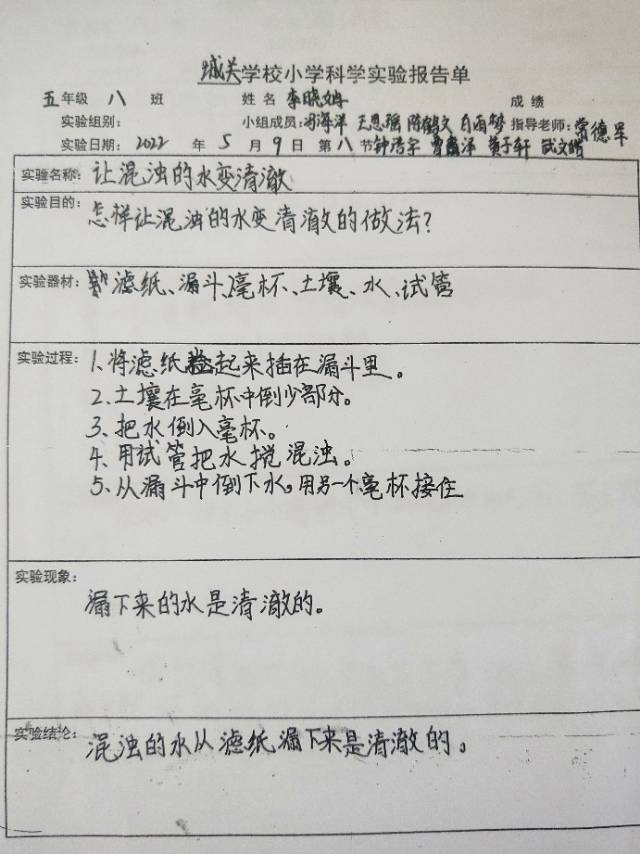 城关学校小学科学实验报告单
五年级 八 班 姓名 李晓娟 成绩
实验组别： 小组成员：冯海洋 王思瑶 陈鹤文 白雨梦 指导老师：常德军
实验日期：2022 年 5 月 9 日 第 八 节 钟浩宇 曹鑫泽 黄子轩 武文皓
实验名称：让混浊的水变清澈
实验目的：怎样让混浊的水变清澈的做法？
实验器材：滤纸、漏斗、毫杯、土壤、水、试管
实验过程：1.将滤纸卷起来插在漏斗里。
2.土壤在毫杯中倒少部分。
3.把水倒入毫杯。
4.用试管把水搅混浊。
5.从漏斗中倒下水。用另一个毫杯接住
实验现象：
漏下来的水是清澈的。
实验结论：混浊的水从滤纸漏下来是清澈的。